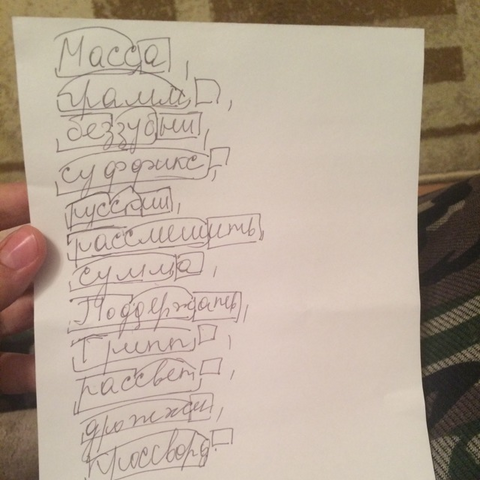 Масса,
грамм,
беззубый,
суффикс,
русский,
рассмешить,
сумма,
Поддержать,
Грипп,
рассвет,
дрожжи,
кроссворд.